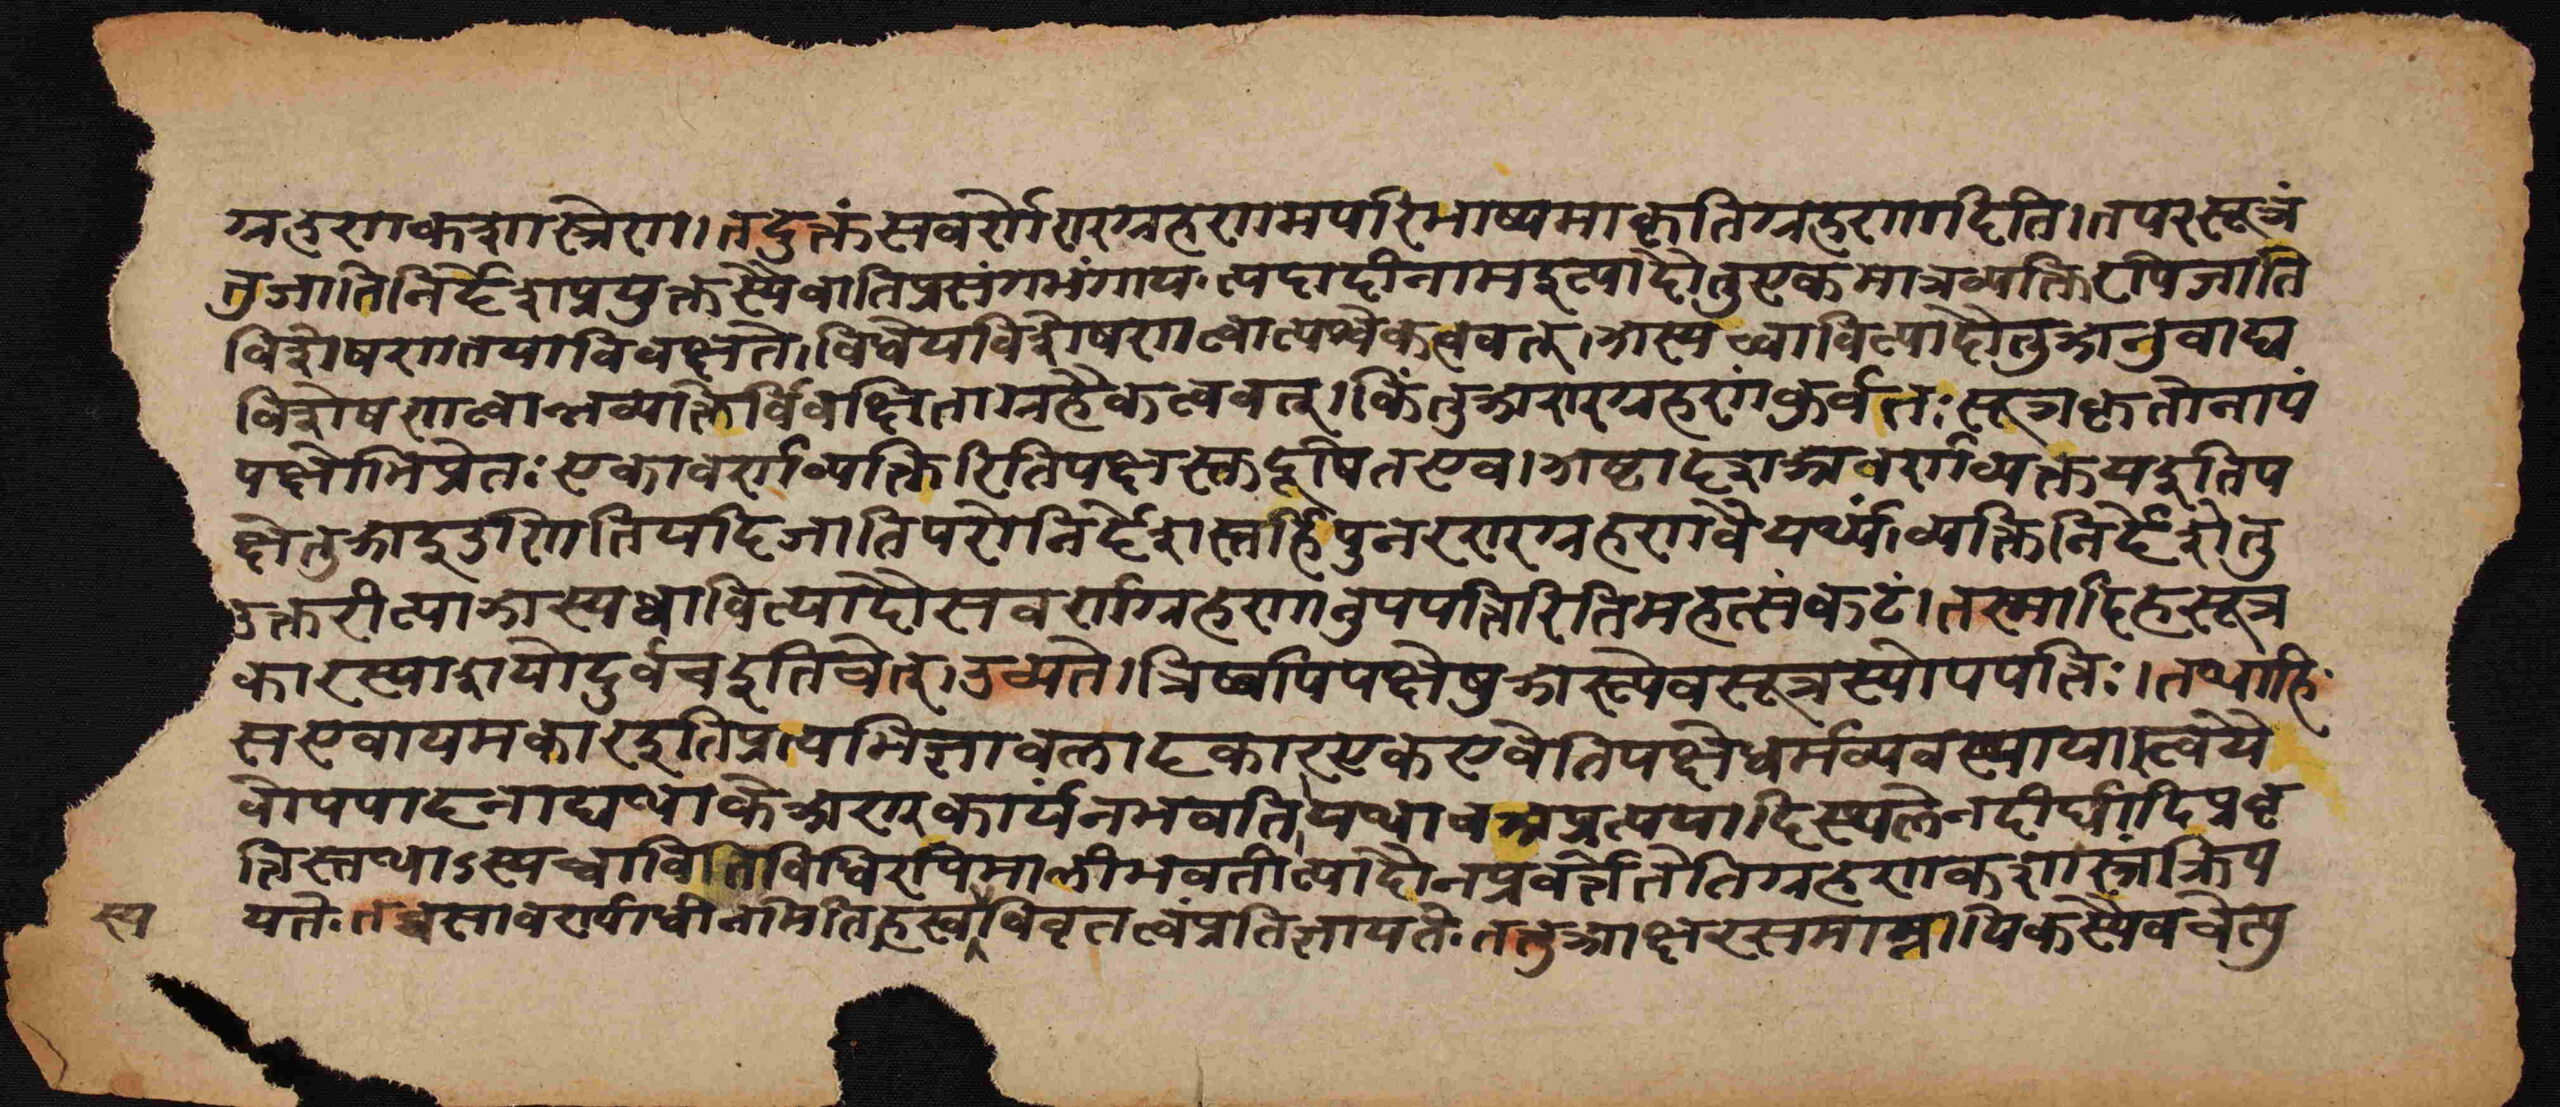 ग्रहणकशास्त्रेण। तदुक्तं सवर्णेऽण्ग्रहणमपरिभाष्यमाकृतिग्रहणादिति। तपरसूत्रं
तु जातिनिर्देशप्रयुक्तस्यैवातिप्रसंगभंगाय। त्यदादीनाम इत्यादौ तु एकमात्रव्यक्तिरपि जाति
विशेषणतया विवक्ष्यते। विधेयविशेषणत्वात्पश्वेकत्ववत्। अस्य च्वावित्यादौ तु अनुवाद्य
विशेषणत्वान्नव्यक्तिर्विवक्षिता ग्रहैकत्ववत्। किंतु अण्ग्रहणं कुर्वतः सूत्रकृतो नायं
पक्षोभिप्रेतः एकावर्णव्यक्तिरितिपक्षस्तु दूषित एव। अष्टादश अवर्णव्यक्तय इति प
क्षे तु अइउणिति यदि जातिपरो निर्देशस्तर्हि पुनरण्ग्रहणवैयर्थ्यं। व्यक्तिनिर्देशे तु
उक्तरीत्या अस्य च्वावित्यादौ सवर्णाग्रहणानुपपत्तिरिति महत्संकटं। तस्मादिह सूत्र
कारस्याशयो दुर्वच इति चेत्। उच्यते। त्रिष्वपि पक्षेषु अस्त्येव सूत्रस्योपपत्तिः। तथाहि
स एवायमकार इति प्रत्यभिज्ञाबलादकार एक एवेति पक्षे धर्मव्यवस्थाया त्वयै
वोपपादनाद्यथाके अण्कार्यं न भवति यथा च अप्रत्ययादिस्थले न दीर्घादिप्रवृ
त्तिस्तथाऽस्य च्वावितिविधिरपि मालीभवतीत्यादौ न प्रवर्त्तेतेति ग्रहणकशास्त्रं क्रिय
यते। तच्च सावर्ण्याधीनमिति ह्रस्व विवृतत्वं प्रतिज्ञायते। तत्तु आक्षरसमाम्नायिकस्यैव चेत्यु
स्य